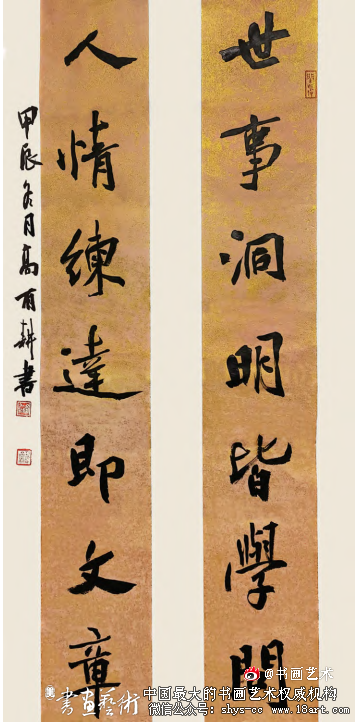 世事洞明皆學問
人情練達即文章
甲辰冬月高百耕書
@书画艺术
書畫藝術
中国最大的书画艺术权威机构
微信公众号: shys-cc www.18art.com